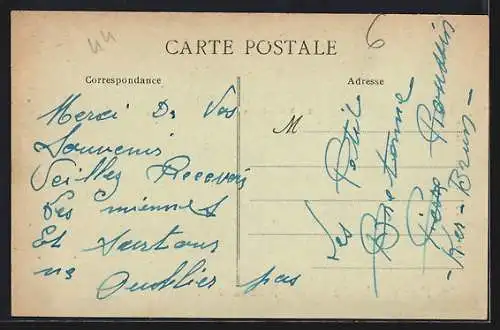 44
6
CARTE POSTALE
Correspondance
Adresse
Merci De Vos
Souvenirs
Veilley Recevoir
Les miennes
Et surtous
ne Oublier pas
M
Les Petit
Bretonne
- Ker - Brun -